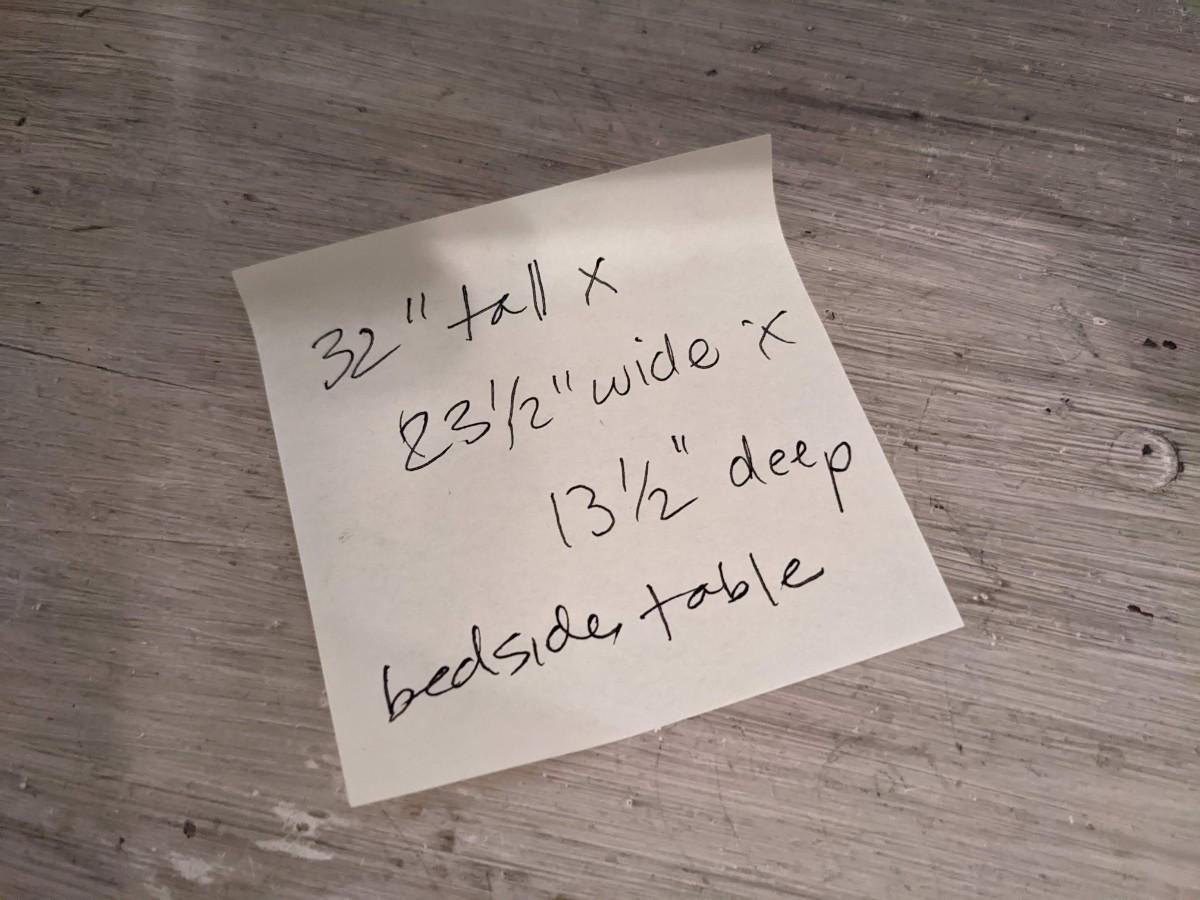 32" tall x
23 1/2" wide x
13 1/2" deep
bedside table